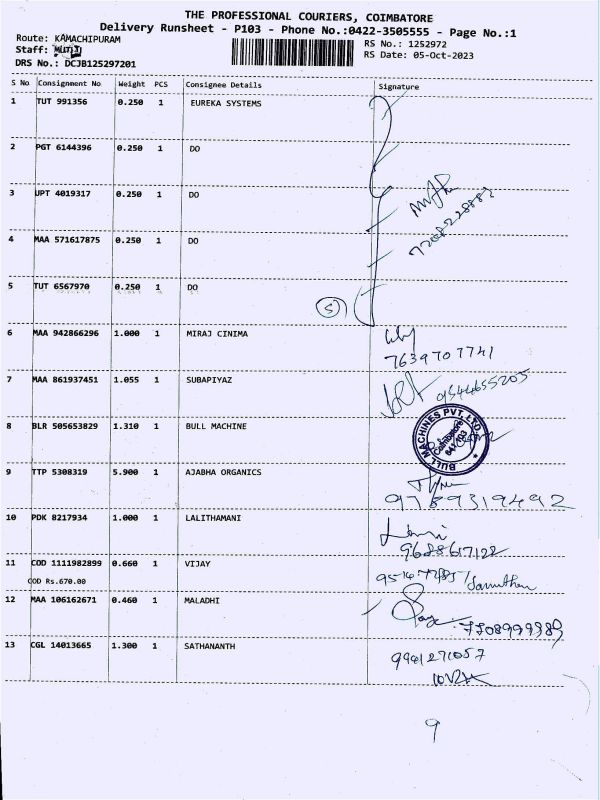 THE PROFESSIONAL COURIERS, COIMBATORE
Delivery Runsheet - P103 - Phone No.:0422-3505555 - Page No.:1
Route: KAMACHIPURAM
RS No.: 1252972
Staff:
RS Date: 05-Oct-2023
DRS No.: DCJB125297201
S No Consignment No Weight PCS Consignee Details Signature
1 TUT 991356 0.250 1 EUREKA SYSTEMS
2 PGT 6144396 0.250 1 DO
3 JPT 4019317 0.250 1 DO
4 MAA 571617875 0.250 1 DO
5 TUT 6567970 0.250 1 DO
5
6 MAA 942866296 1.000 1 MIRAJ CINIMA
7639707741
7 MAA 861937451 1.055 1 SUBAPIYAZ
9544655205
8 BLR 505653829 1.310 1 BULL MACHINE
BULL MACHINES PVT. LTD.
Coimbatore
641 103
9 TTP 5308319 5.900 1 AJABHA ORGANICS
9789319492
10 PDK 8217934 1.000 1 LALITHAMANI
9688617122
11 COD 1111982899 0.660 1 VIJAY
COD Rs.670.00
12 MAA 106162671 0.460 1 MALADHI
13 CGL 14013665 1.300 1 SATHANANTH
9